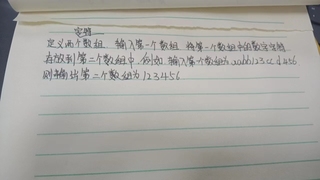 定义两个数组，输入第一个数组，将第一个数组中的数字字符
存放到第二个数组中，例如 输入第一个数组为 aabb123ccd456
则输出第二个数组为123456